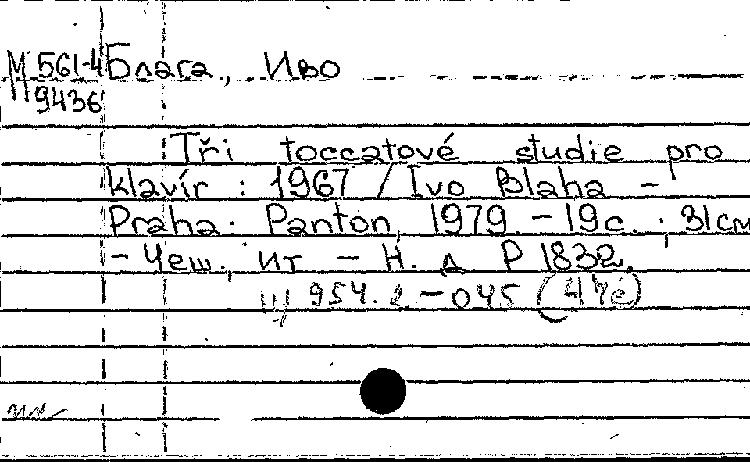 М 561-4 Блага, Иво
9436
Tři toccatové studie pro
klavír : 1967 / Ivo Blaha -
Praha: Panton, 1979 - 19с. ; 31см
- Чеш., ит - Н. д Р 1832.
954.2-045 (4Че)